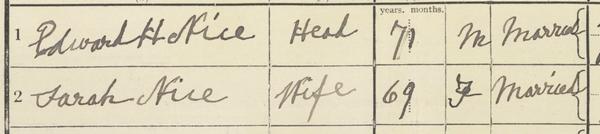 years. months.
1 Edward H Nice Head 71 M Married
2 Sarah Nice Wife 69 F Married